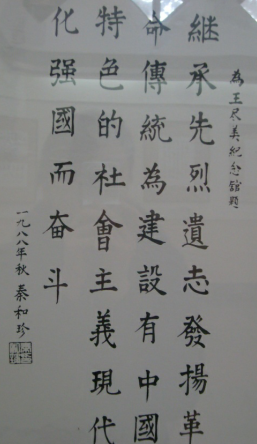 為王尽美紀念館題
継承先烈遺志發揚革
命傳統為建設有中國
特色的社會主義現代
化强國而奋斗
一九八八年秋 秦和珍